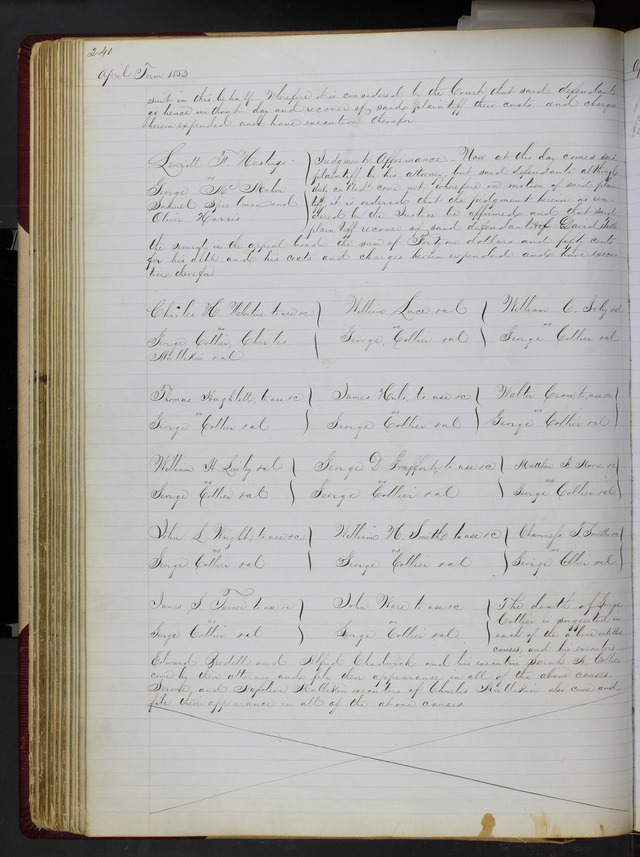 240
April Term 1853
suit in this behalf. Wherefore it is considered by the Court, that said defendants
go hence without day and recover of said plaintiff their costs and charges
herein expended and have execution therefor
Leverett F. Hastings
vs
George Mc Mahn
Samuel and
Oliver Harris
Judgment Affirmance. Now at this day comes said
plaintiff by his attorney, but said defendants although
duly called come not wherefore on motion of said plain
tiff it is ordered that the judgment herein as ren
dered by the Justice be affirmed and that said
plaintiff recover of said defendants and of David
the security in the appeal bond the sum of dollars and fifty cents
for his debt and his costs and charges herein expended and have execu
tion therefor
Charles H. to use &c
vs
George Collier, Charles
Mullikin &al
William Luce &al
vs
George Collier &al
William C. &al
vs
George Collier &al
Thomas Hughlett, to use &c
vs
George Collier &al
James to use &c
vs
George Collier &al
Walter Crow to use &c
vs
George Collier &al
William H. &al
vs
George Collier &al
George D. to use &c
vs
George Collier &al
Matthew F. &c
vs
George Collier &al
John L. Wright, to use &c
vs
George Collier &al
William H. Smith, to use &c
vs
George Collier &al
T. Smith &c
vs
George Collier &al
James S. Turner to use &c
vs
George Collier &al
John Ware to use &c
vs
George Collier &al
The death of George
Collier is suggested in
each of the above entitled
causes, and his executors
Edward Bredell and Alfred Chadwick and his executrix Sarah A. Collier
come by their attorney and file their appearance in all of the above causes
and Napoleon Mullikin executors of Charles Mullikin also come and
file their appearance in all of the above causes.